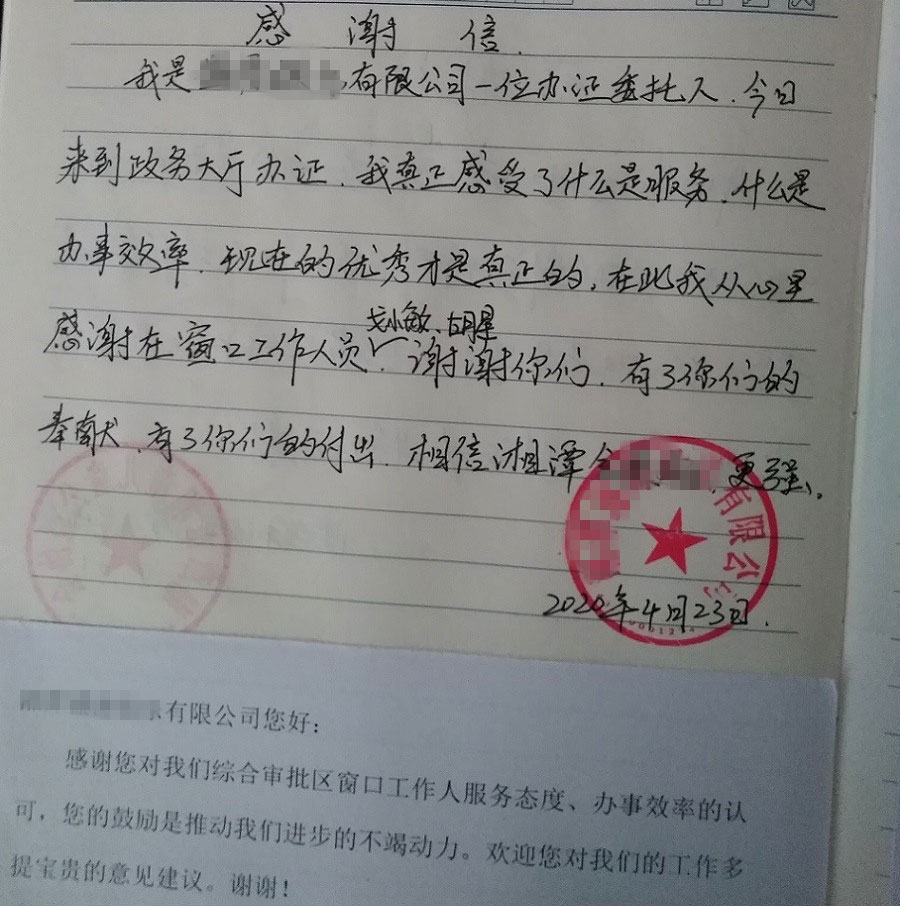 感谢信.
我是有限公司一位办证委托人.今日
来到政务大厅办证.我真正感受了什么是服务.什么是
办事效率.现在的优秀才是真正的.在此我从心里
戈小敏.胡星
感谢在窗口工作人员.谢谢你们.有了你们的
奉献.有了你们的付出.相信湘潭会更强。
有限公司
2020年4月23日.
有限公司您好：
感谢您对我们综合审批区窗口工作人服务态度、办事效率的认
可，您的鼓励是推动我们进步的不竭动力。欢迎您对我们的工作多
提宝贵的意见建议。谢谢！